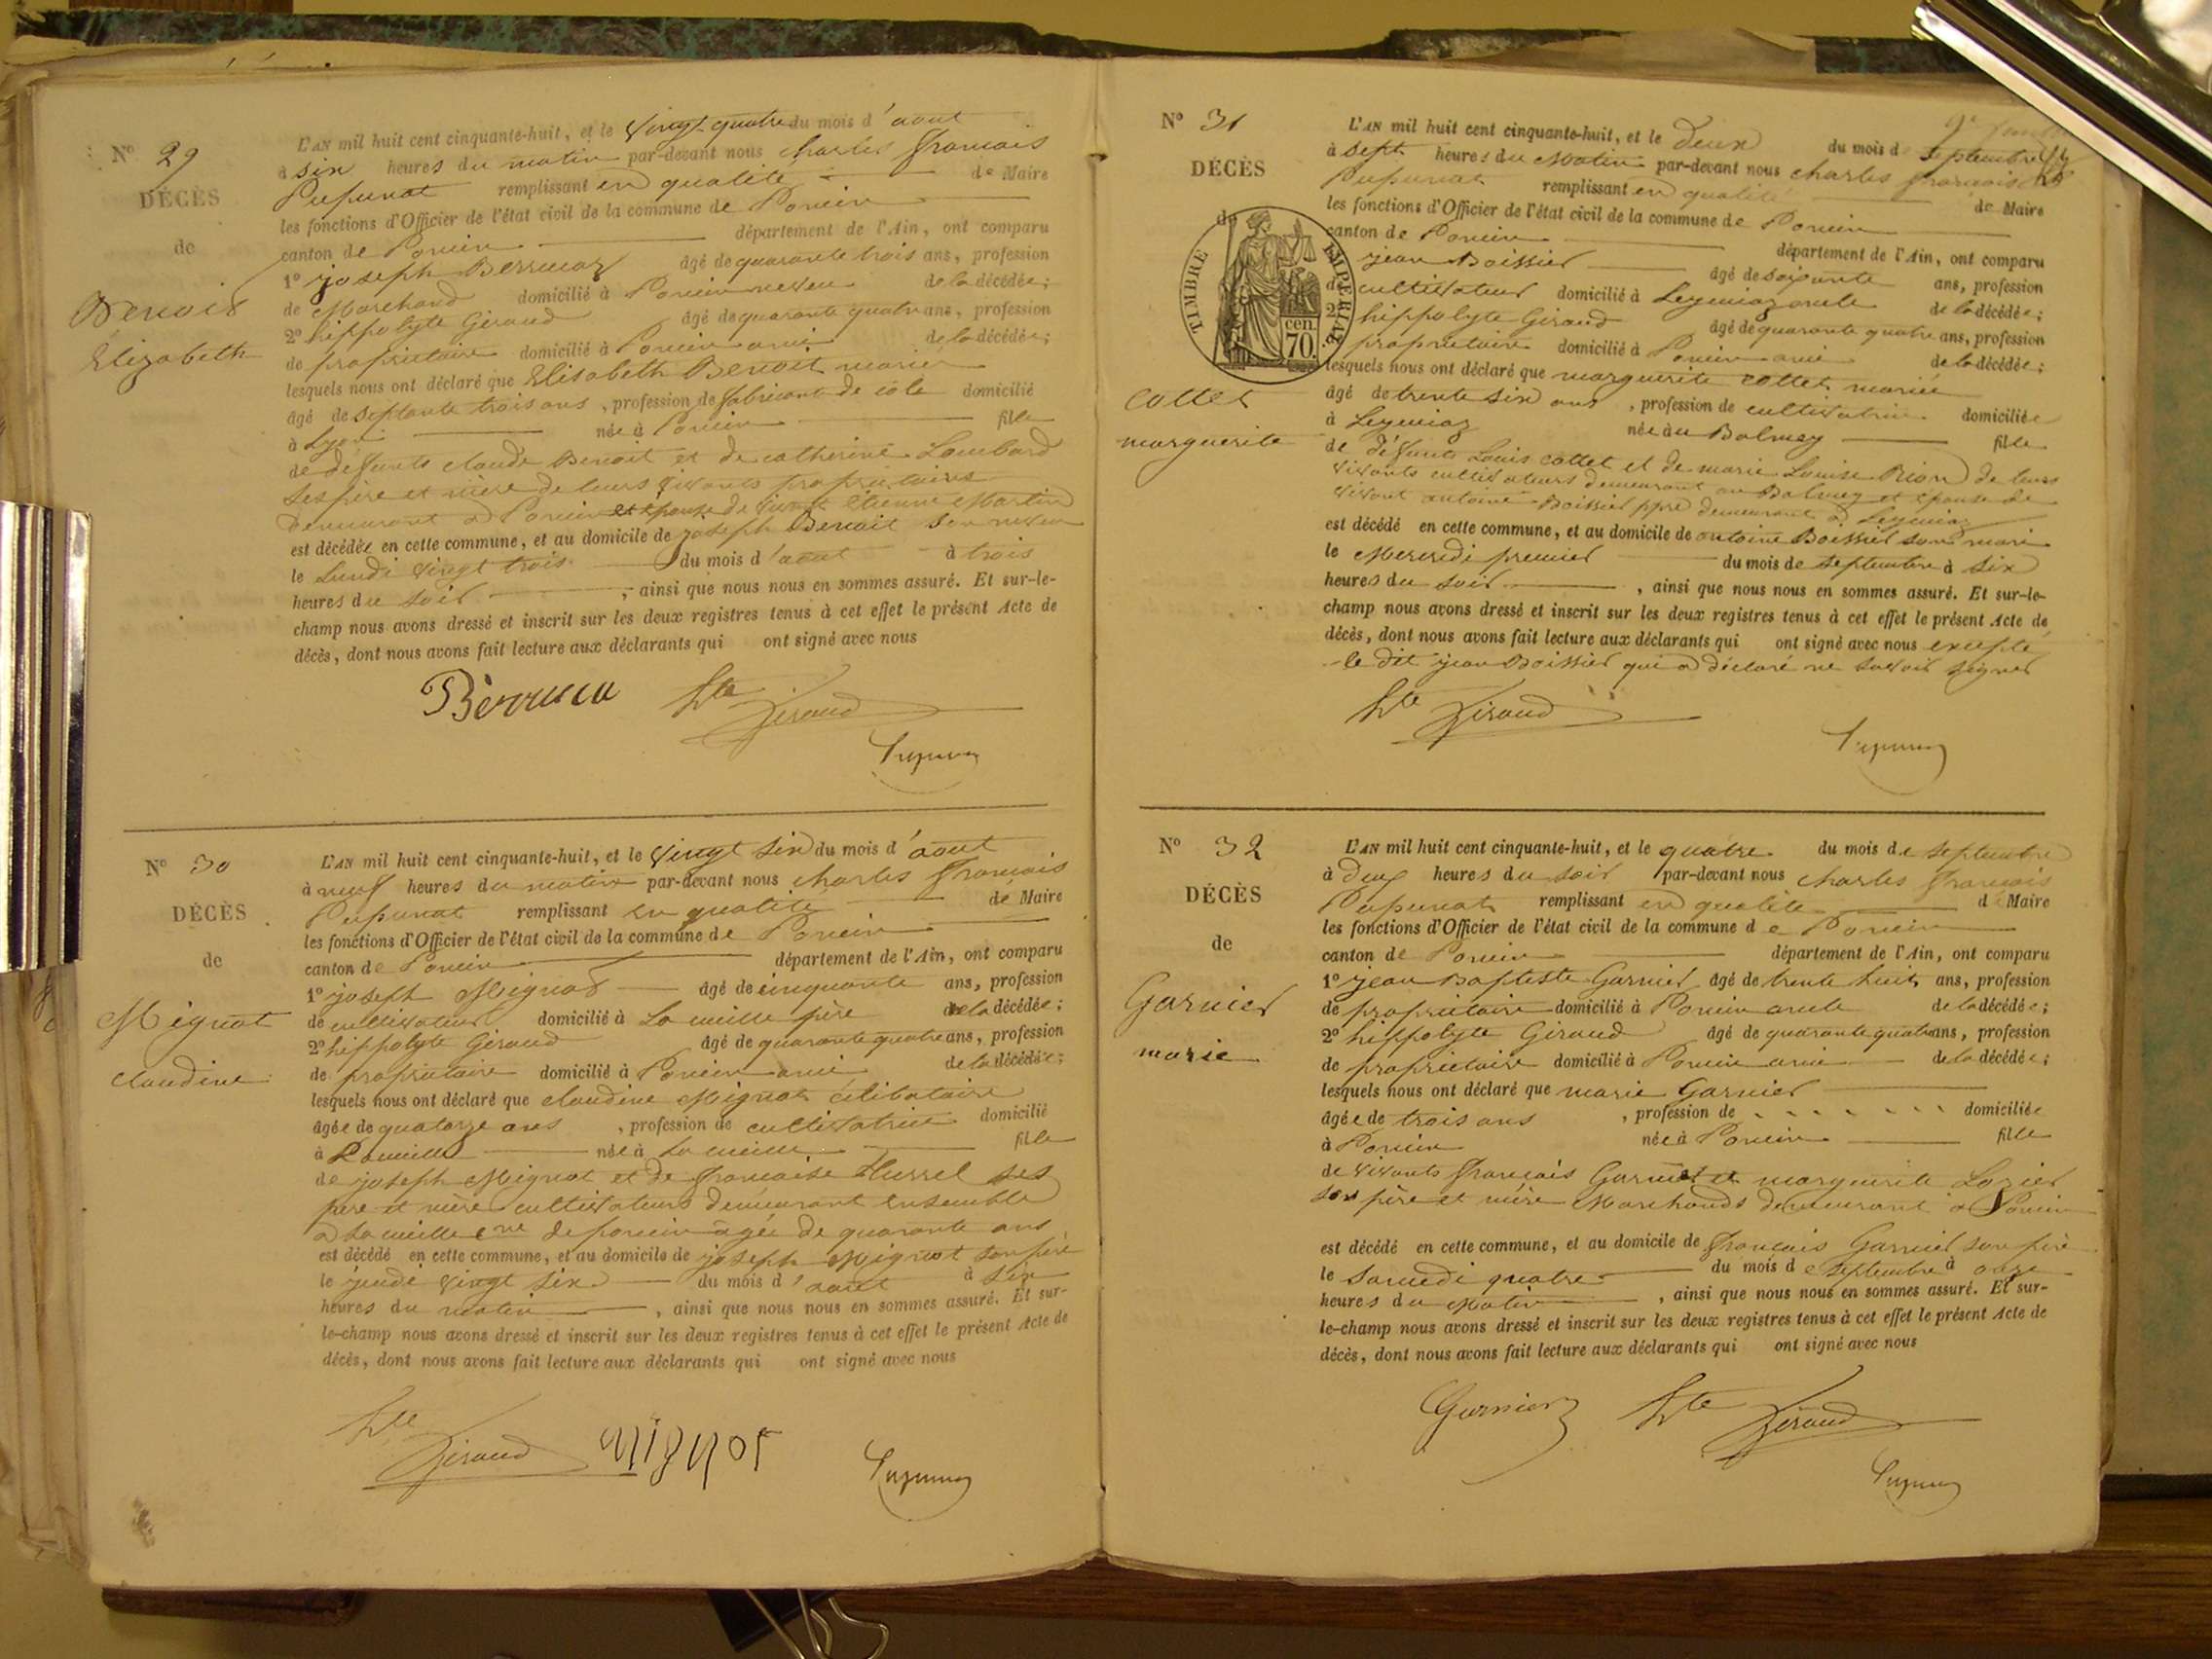 N° 29
DÉCÈS
de
Benoit
Elizabeth
L'AN mil huit cent cinquante-huit, et le vingt quatre du mois d'août
à six heures du matin par-devant nous charles françois
Pupunat remplissant en qualité de Maire
les fonctions d'Officier de l'état civil de la commune de Poncin
canton de Poncin département de l'Ain, ont comparu
1° joseph âgé de quarante trois ans, profession
de Marchand domicilié à Poncin neveu de la décédée;
2° hippolyte Giraud âgé de quarante quatre ans, profession
de propriétaire domicilié à Poncin ami de la décédée;
lesquels nous ont déclaré que Elisabeth Benoit mariée
âgé de septante trois ans, profession de fabricante de domicilié
à Lyon née à Poncin fille
de défunts claude Benoit et de catherine Lombard
ses père et mère de leurs vivants propriétaires
demeurant à Poncin et épouse de vivant Etienne Martin
est décédée en cette commune, et au domicile de joseph Benoit son neveu
le Lundi vingt trois du mois d'août à trois
heures du soir, ainsi que nous nous en sommes assuré. Et sur-le-
champ nous avons dressé et inscrit sur les deux registres tenus à cet effet le présent Acte de
décès, dont nous avons fait lecture aux déclarants qui ont signé avec nous
hte Giraud
N° 30
DÉCÈS
de
Mignot
claudine
L'AN mil huit cent cinquante-huit, et le vingt six du mois d'août
à neuf heures du matin par-devant nous charles françois
Pupunat remplissant en qualité de Maire
les fonctions d'Officier de l'état civil de la commune de Poncin
canton de Poncin département de l'Ain, ont comparu
1° joseph Mignot âgé de cinquante ans, profession
de cultivateur domicilié à La cueille père de la décédée;
2° hippolyte Giraud âgé de quarante quatre ans, profession
de propriétaire domicilié à Poncin ami de la décédée;
lesquels nous ont déclaré que claudine Mignot célibataire
âgée de quatorze ans, profession de cultivatrice domicilié
à La cueille née à La cueille fille
de joseph Mignot et de françoise ses
père et mère cultivateurs demeurant ensemble
à La cueille cne de poncin âgée de quarante ans
est décédé en cette commune, et au domicile de joseph Mignot son père
le jeudi vingt six du mois d'août à six
heures du matin, ainsi que nous nous en sommes assuré. Et sur-
le-champ nous avons dressé et inscrit sur les deux registres tenus à cet effet le présent Acte de
décès, dont nous avons fait lecture aux déclarants qui ont signé avec nous
hte Giraud mignot
N° 31
DÉCÈS
de
TIMBRE IMPERIAL
cen. 70.
cottet
marguerite
L'AN mil huit cent cinquante-huit, et le deux du mois de septembre
à sept heures du Matin par-devant nous charles françois
Pupunat remplissant en qualité de Maire
les fonctions d'Officier de l'état civil de la commune de Poncin
canton de Poncin département de l'Ain, ont comparu
jean Boissier âgé de soixante ans, profession
de cultivateur domicilié à Leymiaz oncle de la décédée;
2° hippolyte Giraud âgé de quarante quatre ans, profession
propriétaire domicilié à Poncin ami de la décédée;
lesquels nous ont déclaré que marguerite cottet mariée
âgé de trente six ans, profession de cultivatrice domiciliée
à Leymiaz née au Balmay fille
de défunts Louis cottet et de marie Louise Rion de leurs
vivants cultivateurs demeurant au Balmay et épouse de
vivant antoine Boissier ppre demeurant à Leymiaz
est décédé en cette commune, et au domicile de antoine Boissier son mari
le Mercredi premier du mois de septembre à six
heures du soir, ainsi que nous nous en sommes assuré. Et sur-le-
champ nous avons dressé et inscrit sur les deux registres tenus à cet effet le présent Acte de
décès, dont nous avons fait lecture aux déclarants qui ont signé avec nous excepté
le dit jean Boissier qui a déclaré ne savoir signer
hte Giraud
N° 32
DÉCÈS
de
Garnier
marie
L'AN mil huit cent cinquante-huit, et le quatre du mois de septembre
à deux heures du soir par-devant nous charles françois
Pupunat remplissant en qualité d Maire
les fonctions d'Officier de l'état civil de la commune de Poncin
canton de Poncin département de l'Ain, ont comparu
1° jean Baptiste Garnier âgé de trente huit ans, profession
de propriétaire domicilié à Poncin oncle de la décédée;
2° hippolyte Giraud âgé de quarante quatre ans, profession
de propriétaire domicilié à Poncin ami de la décédée;
lesquels nous ont déclaré que marie Garnier
âgée de trois ans, profession de domiciliée
à Poncin née à Poncin fille
de vivants françois Garnier et marguerite Lozier
son père et mère Marchands demeurant à Poncin
est décédé en cette commune, et au domicile de françois Garnier son père
le samedi quatre du mois de septembre à onze
heures du Matin, ainsi que nous nous en sommes assuré. Et sur-
le-champ nous avons dressé et inscrit sur les deux registres tenus à cet effet le présent Acte de
décès, dont nous avons fait lecture aux déclarants qui ont signé avec nous
Garnier hte Giraud